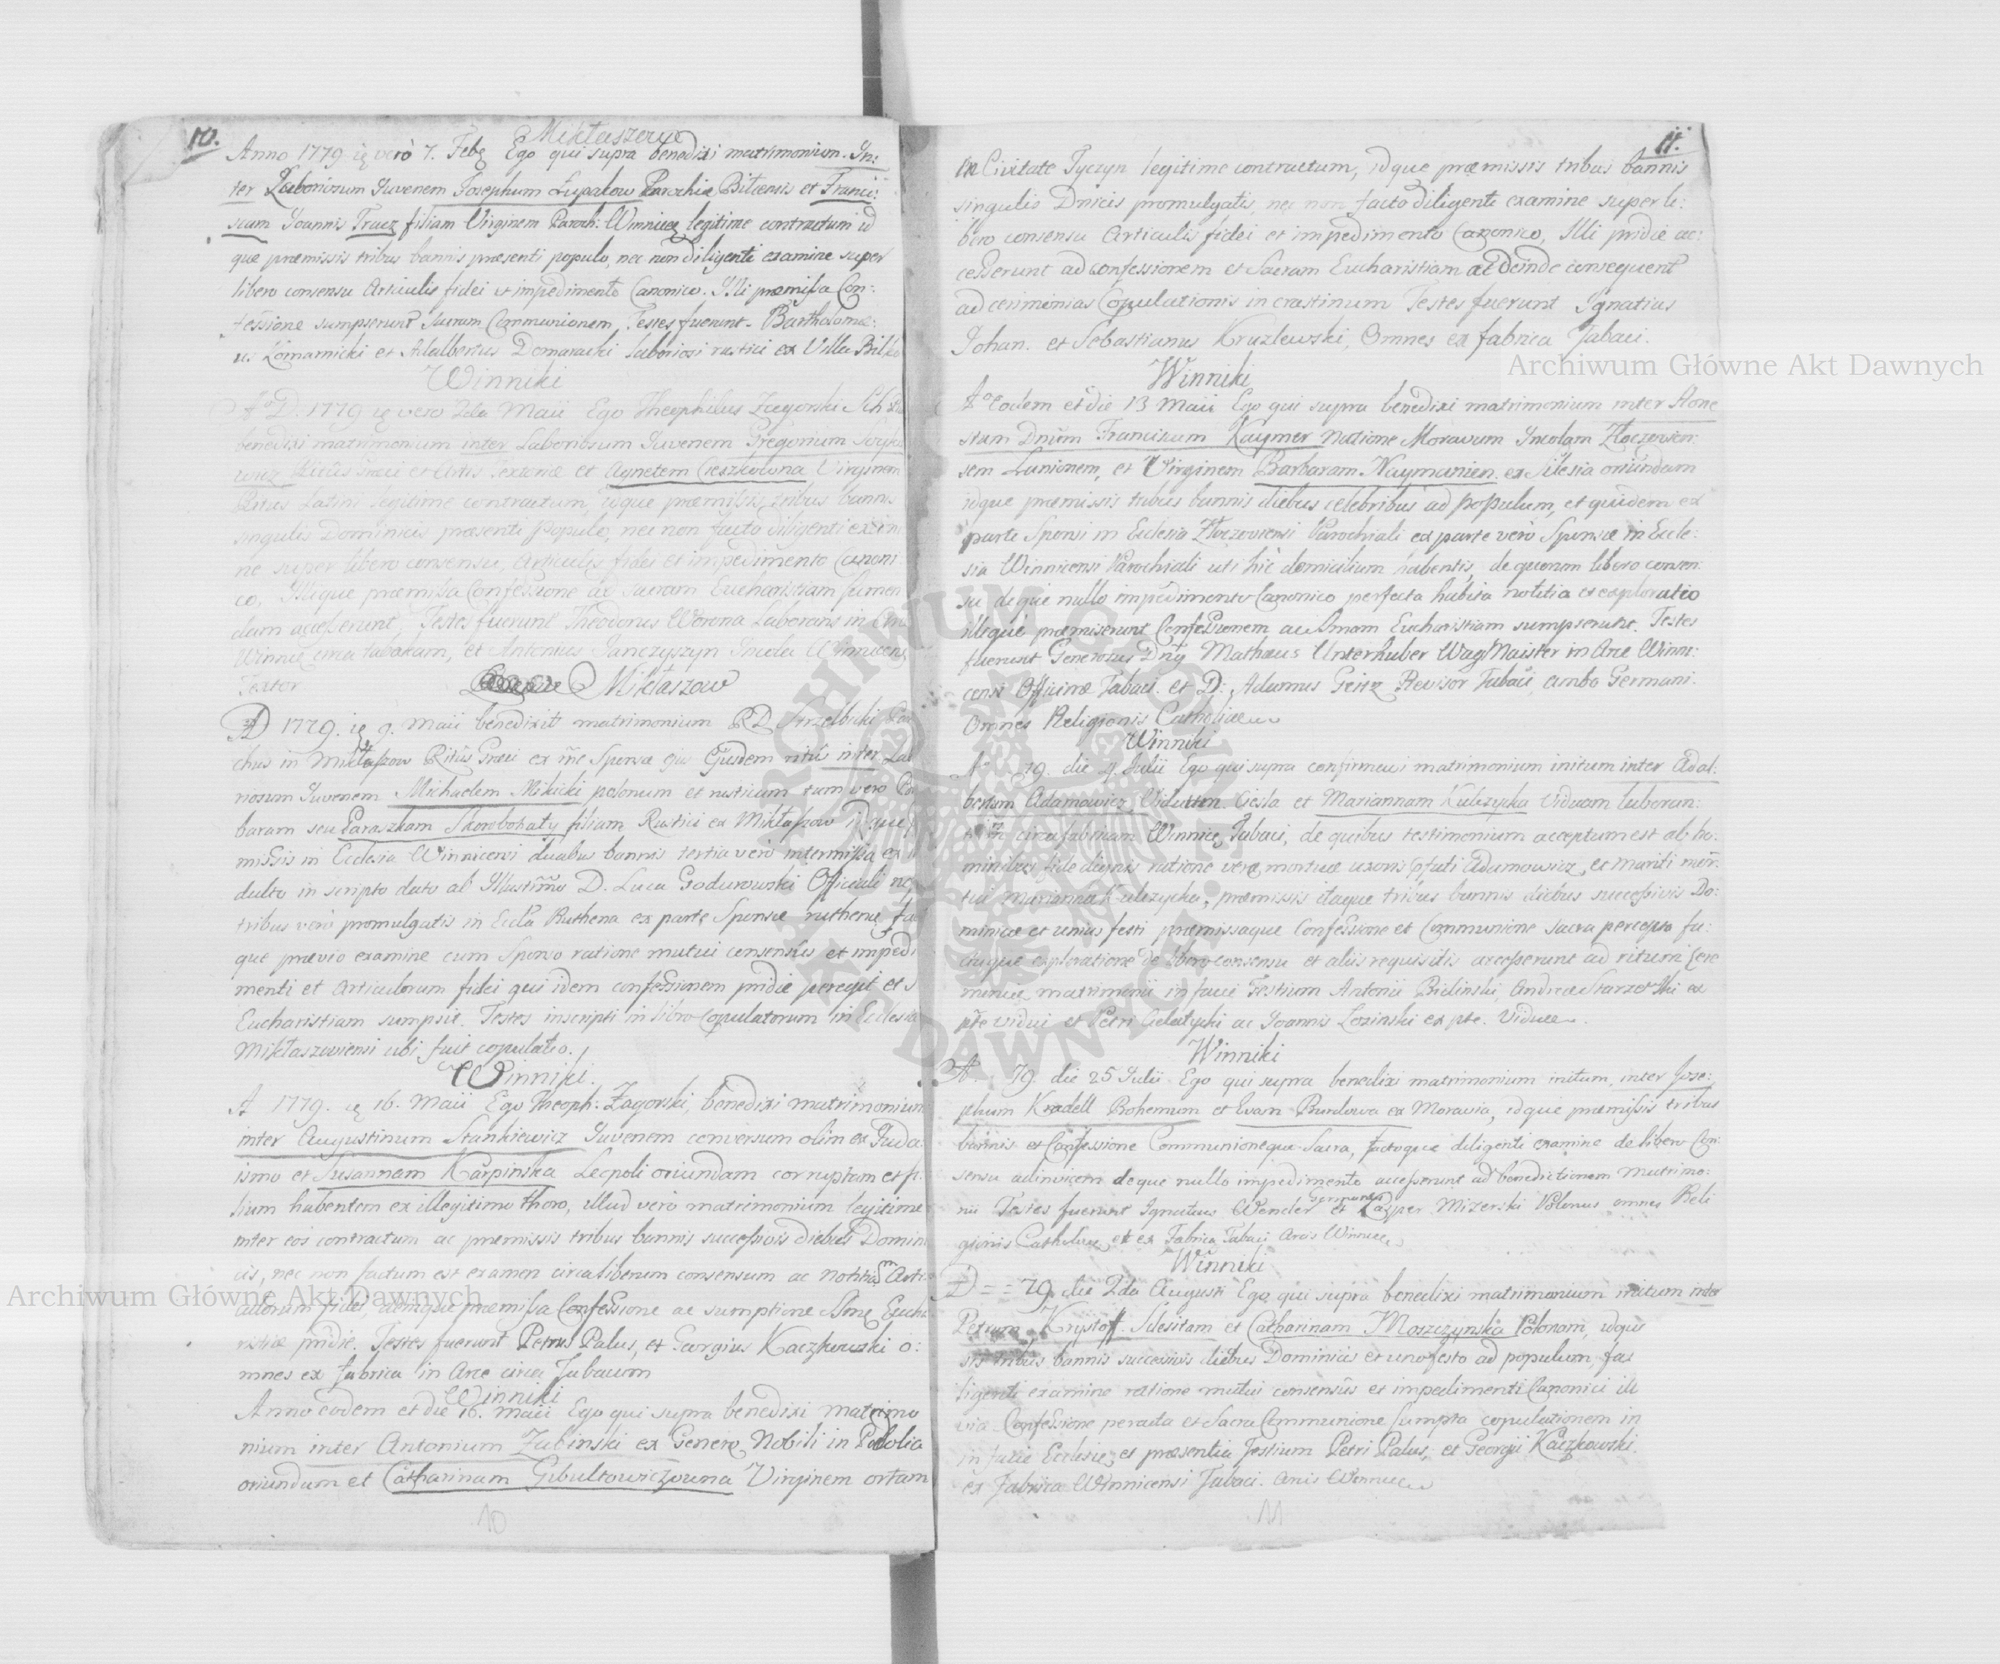 10.
Miklaszow
Anno 1779 ię vero 7. Feb Ego qui supra benedixi matrimonium. In:
ter Laboriosum Juvenem Josephum Łupałow Parochiæ Bilcensis et Franci:
scam Joannis Tracz filiam Virginem Paroch: Winnicę legitime contractum id
que præmissis tribus bannis præsenti populo, nec non diligenti examine super
libero consensu Articulis fidei et impedimento Canonico. Illi præmissa Con:
fessione sumpserunt Sacram Communionem, Testes fuerunt Bartholomæ:
us Komarnicki et Adalbertus Domaracki laboriosi rustici ex Villa
Winniki
Ao D. 1779 ię vero 2da Maii Ego Theophilus Zagorski
benedixi matrimonium inter Laboriosum Juvenem Gregorium
Ritus Græci et Artis Textoriæ et Agnetem Cieszkowna Virginem
Ritus Latini legitime contractum, idque præmissis tribus bannis
singulis Dominicis præsenti Populo, nec non facto diligenti exami
ne super libero consensu, Articulis fidei et impedimento Canoni
co, Illique præmissa Confessione ad Sacram Eucharistiam sumen
dam accesserunt, Testes fuerunt Theodorus Worona Laborans in
Winnic circa tabakam, et Antonius Janczyszyn Incola Winnicens
Textor
Miklaszow
AD 1779. ię 9. Maii benedixit matrimonium RD Strzelbicki
chus in Miklaszow Ritus Græci ex Sponsæ ejusdem ritus inter Lab
riosum Juvenem Michaelem Mikicki polonum et rusticum tum vero Bar
baram seu Paraszkam Skorobohaty filiam Rustici ex Miklaszow idque
missis in Ecclesia Winnicensi duabus bannis tertia vero intermissa ex
dulto in scripto dato ab Illustrmo D. Luca Godurowski Officiali
tribus vero promulgatis in Eccla Ruthena ex parte Sponsæ ruthenę
que prævio examine cum Sponso ratione mutui consensus et impedi
menti et Articulorum fidei qui idem confessionem pridie peregit et S
Eucharistiam sumpsit. Testes inscripti in libro Copulatorum in Ecclesia
Miklaszowiensi ubi fuit copulatio.
Winniki.
A 1779. ię 16. Maii Ego Theoph: Zagorski, benedixi matrimonium
inter Augustinum Stankiewicz Juvenem conversum olim ex Juda:
ismo et Susannam Karpinska Leopoli oriundam corruptam et fi
lium habentem ex illegitimo thoro, illud vero matrimonium legitime
inter eos contractum ac præmissis tribus bannis successivis diebus Domini
cis, nec non factum est examen circa liberum consensum ac notitiam Arti
culorum fidei, denique præmissa Confessione ac sumptione Almę Eucha
ristiæ pridie. Testes fuerunt Petrus Palus, et Georgius Kaczkowski o:
mnes ex fabrica in Arce circa Tabacum
Winniki
Anno eodem et die 16. Maii Ego qui supra benedixi matrimo
nium inter Antonium Zubinski ex Genere Nobili in Podolia
oriundum et Catharinam Gibultowiczowna Virginem ortam
10
11.
in Civitate Tyczyn legitime contractum, idque præmissis tribus bannis
singulis Dnicis promulgatis, nec non facto diligenti examine super li:
bero consensu Articulis fidei et impedimento Canonico, Illi pridie ac:
cesserunt ad confessionem et Sacram Eucharistiam ac deinde consequent
ad cerimonias Copulationis in crastinum Testes fuerunt Ignatius
Johan. et Sebastianus Kruzlewski, Omnes ex fabrica Tabaci.
Winniki
Ao eodem et die 13 Maii Ego qui supra benedixi matrimonium inter Hone
stum Dnum Franciscum Kaymer natione Moravum Incolam Złoczowien:
sem Lanionem, et Virginem Barbaram Naymanien ex Silesia oriundam
idque præmissis tribus bannis diebus celebribus ad populum, et quidem ex
parte Sponsi in Ecclesia Złoczoviensi Parochiali ex parte vero Sponsæ in Eccle:
sia Winnicensi Parochiali uti hic domicilium habentis, de quorum libero consen:
su deque nullo impedimento Canonico perfecta habita notitia et exploratio
illique præmiserunt Confessionem ac Almam Eucharistiam sumpserunt. Testes
fuerunt Generosus Dnus Mathæus Unterhuber WagMaister in Arce Winni:
censi Officinæ Tabaci. et D: Adamus Geisz Revisor Tabaci, ambo Germani.
Omnes Religionis Catholicæ
Winniki
Ao 79. die 4 Julii Ego qui supra confirmavi matrimonium initum inter Adal:
bertum Adamowicz Viduum Ciesla et Mariannam Kulczycka Viduam laboran:
circa fabricam Winnicę Tabaci, de quibus testimonium acceptum est ab ho:
minibus fide dignis ratione vere mortuæ uxoris pfati Adamowicz, et mariti mor:
tui Mariannæ Kulczycka, præmissis itaque tribus bannis diebus successivis Do:
minicæ et unius festi præmissaque Confessione et Communione sacra percepta fa:
ctaque exploratione de libero consensu et aliis requisitis accesserunt ad ritum Cere
moniæ matrimonii in facie Testium Antonii Bielinski, Andreæ Starzewski ex
pte vidui et Petri Gelatycki ac Joannis Lozinski ex pte. Viduæ.
Winniki
A. 79. die 25 Julii Ego qui supra benedixi matrimonium initum, inter Jose:
phum Kradell Bohemum et Evam Burdowa ex Moravia, idque præmissis tribus
bannis et Confessione Communioneque Sacra, factoque diligenti examine de libero Con:
sensu adinvicem deque nullo impedimento accesserunt ad benedictionem Matrimo:
nii Testes fuerunt Ignatius Wender Germanus et Kasper Mizerski Polonus omnes Reli
gionis Catholicę et ex Fabrica Tabaci Arcis Winnicę
Winniki
D = = 79. die 2da Augusti Ego qui supra benedixi matrimonium initum inter
Petrum Krystoff Silesitam et Catharinam Moszczynska Polonam, idque
sis tribus bannis successivis diebus Dominicis et uno festo ad populum, fac
ligenti examine ratione mutui consensus et impedimenti Canonici ill
via Confessione peracta et Sacra Communione sumpta copulationem in
in facie Ecclesiæ et præsentia Testium Petri Palus, et Georgii Kaczkowski.
ex fabrica Winnicensi Tabaci. Arcis Winnicę
11
Archiwum Główne Akt Dawnych
Archiwum Główne Akt Dawnych
ARCHIWUM GŁÓWNE AKT DAWNYCH